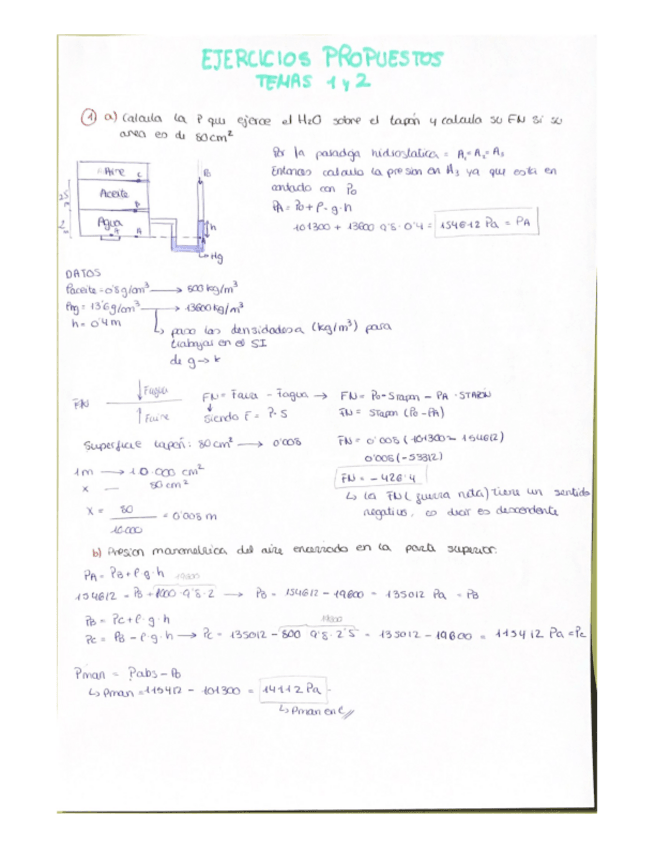 EJERCICIOS PROPUESTOS
TEMAS 1 y 2
① a) Calcula la P que ejerce el H2O sobre el tapón y calcula su FN si su
area es de 80 cm²
Aire
C
Aceite
B
Agua
A
A
B
h
A
Hg
2'5
2
Por la paradoja hidrostatica = A1=A2=A3
Entonces calculo la presion en A3 ya que esta en
contacto con P0
PA = P0 + ρ · g · h
101300 + 13600 · 9'8 · 0'4 = 154612 Pa = PA
DATOS
ρaceite = 0'8 g/cm³ → 800 kg/m³
ρHg = 13'6 g/cm³ → 13600 kg/m³
h = 0'4 m
↳ paso las densidades a (kg/m³) para
trabajar en el SI
de g → k
FN
↓ Fagua
↑ Faire
FN = Faire - Fagua → FN = P0 · Stapon - PA · STAPÓN
siendo F = P · S
FN = Stapon (P0 - PA)
Superficie tapón: 80 cm² → 0'008
FN = 0'008 (101300 - 154612)
0'008 (-53312)
1m → 10.000 cm²
x — 80 cm²
FN = -426'4
↳ La FN (fuerza neta) tiene un sentido
negativo, es decir es descendente
x = 80 / 10.000 = 0'008 m
b) Presion manometrica del aire encerrado en la parte superior:
PA = PB + ρ g · h
19600
154612 = PB + 1000 · 9'8 · 2 → PB = 154612 - 19600 = 135012 Pa = PB
PB = PC + ρ · g · h
19600
PC = PB - ρ · g · h → PC = 135012 - 800 · 9'8 · 2'5 = 135012 - 19600 = 115412 Pa = PC
Pman = Pabs - P0
↳ Pman = 115412 - 101300 = 14112 Pa
↳ Pman en C